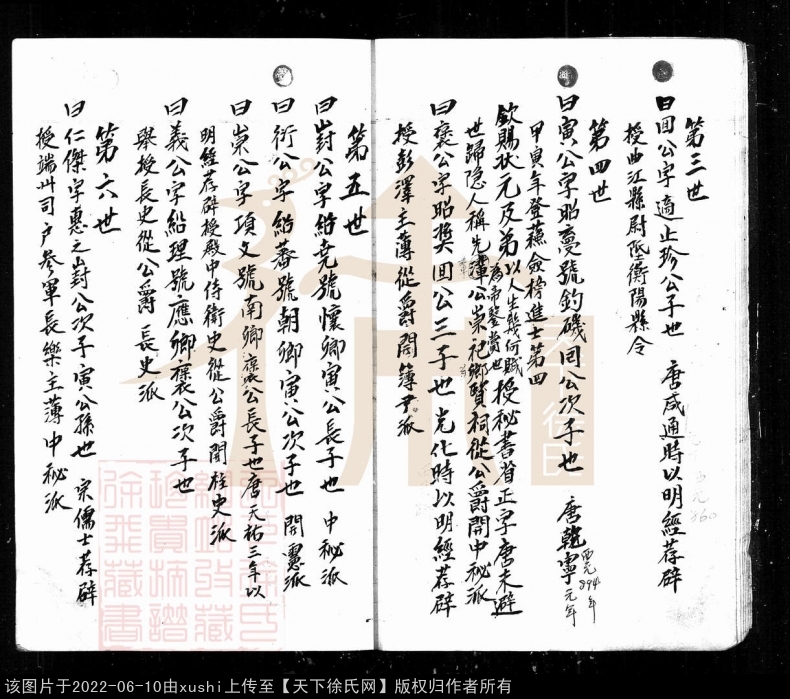 第三世
曰回公字適止珍公子也 唐咸通時以明經荐辟
授曲江縣尉陞衡陽縣令
第四世
曰寅公字昭夢號釣磯回公次子也 唐乾寧元年
西元894年
甲寅年登蘓儉榜進士第四
欽賜狀元及弟以人生幾何賦為帝鍳賞也授秘書省正字唐末避
世歸隐人稱先輩公崇祀鄉賢祠從公爵開中秘派
曰褒公字昭奬回公三子也光化時以明經荐辟
授彭澤主薄從爵開簿尹派
第五世
曰封公字紿堯號懷卿寅公長子也 中秘派
曰衍公字紿蕃號朝卿寅公次子也 開憲派
曰崇公字項文號南卿褒公長子也唐天祐三年以
明經荐辟授殿中侍衛史從公爵開柱史派
曰義公字紿理號應卿褒公次子也
舉授長史從公爵 長史派
第六世
曰仁傑字惠之封公次子寅公孫也 宗儒士荐辟
授端州司户参軍長樂主薄 中秘派
该图片于2022-06-10由xushi上传至【天下徐氏网】版权归作者所有